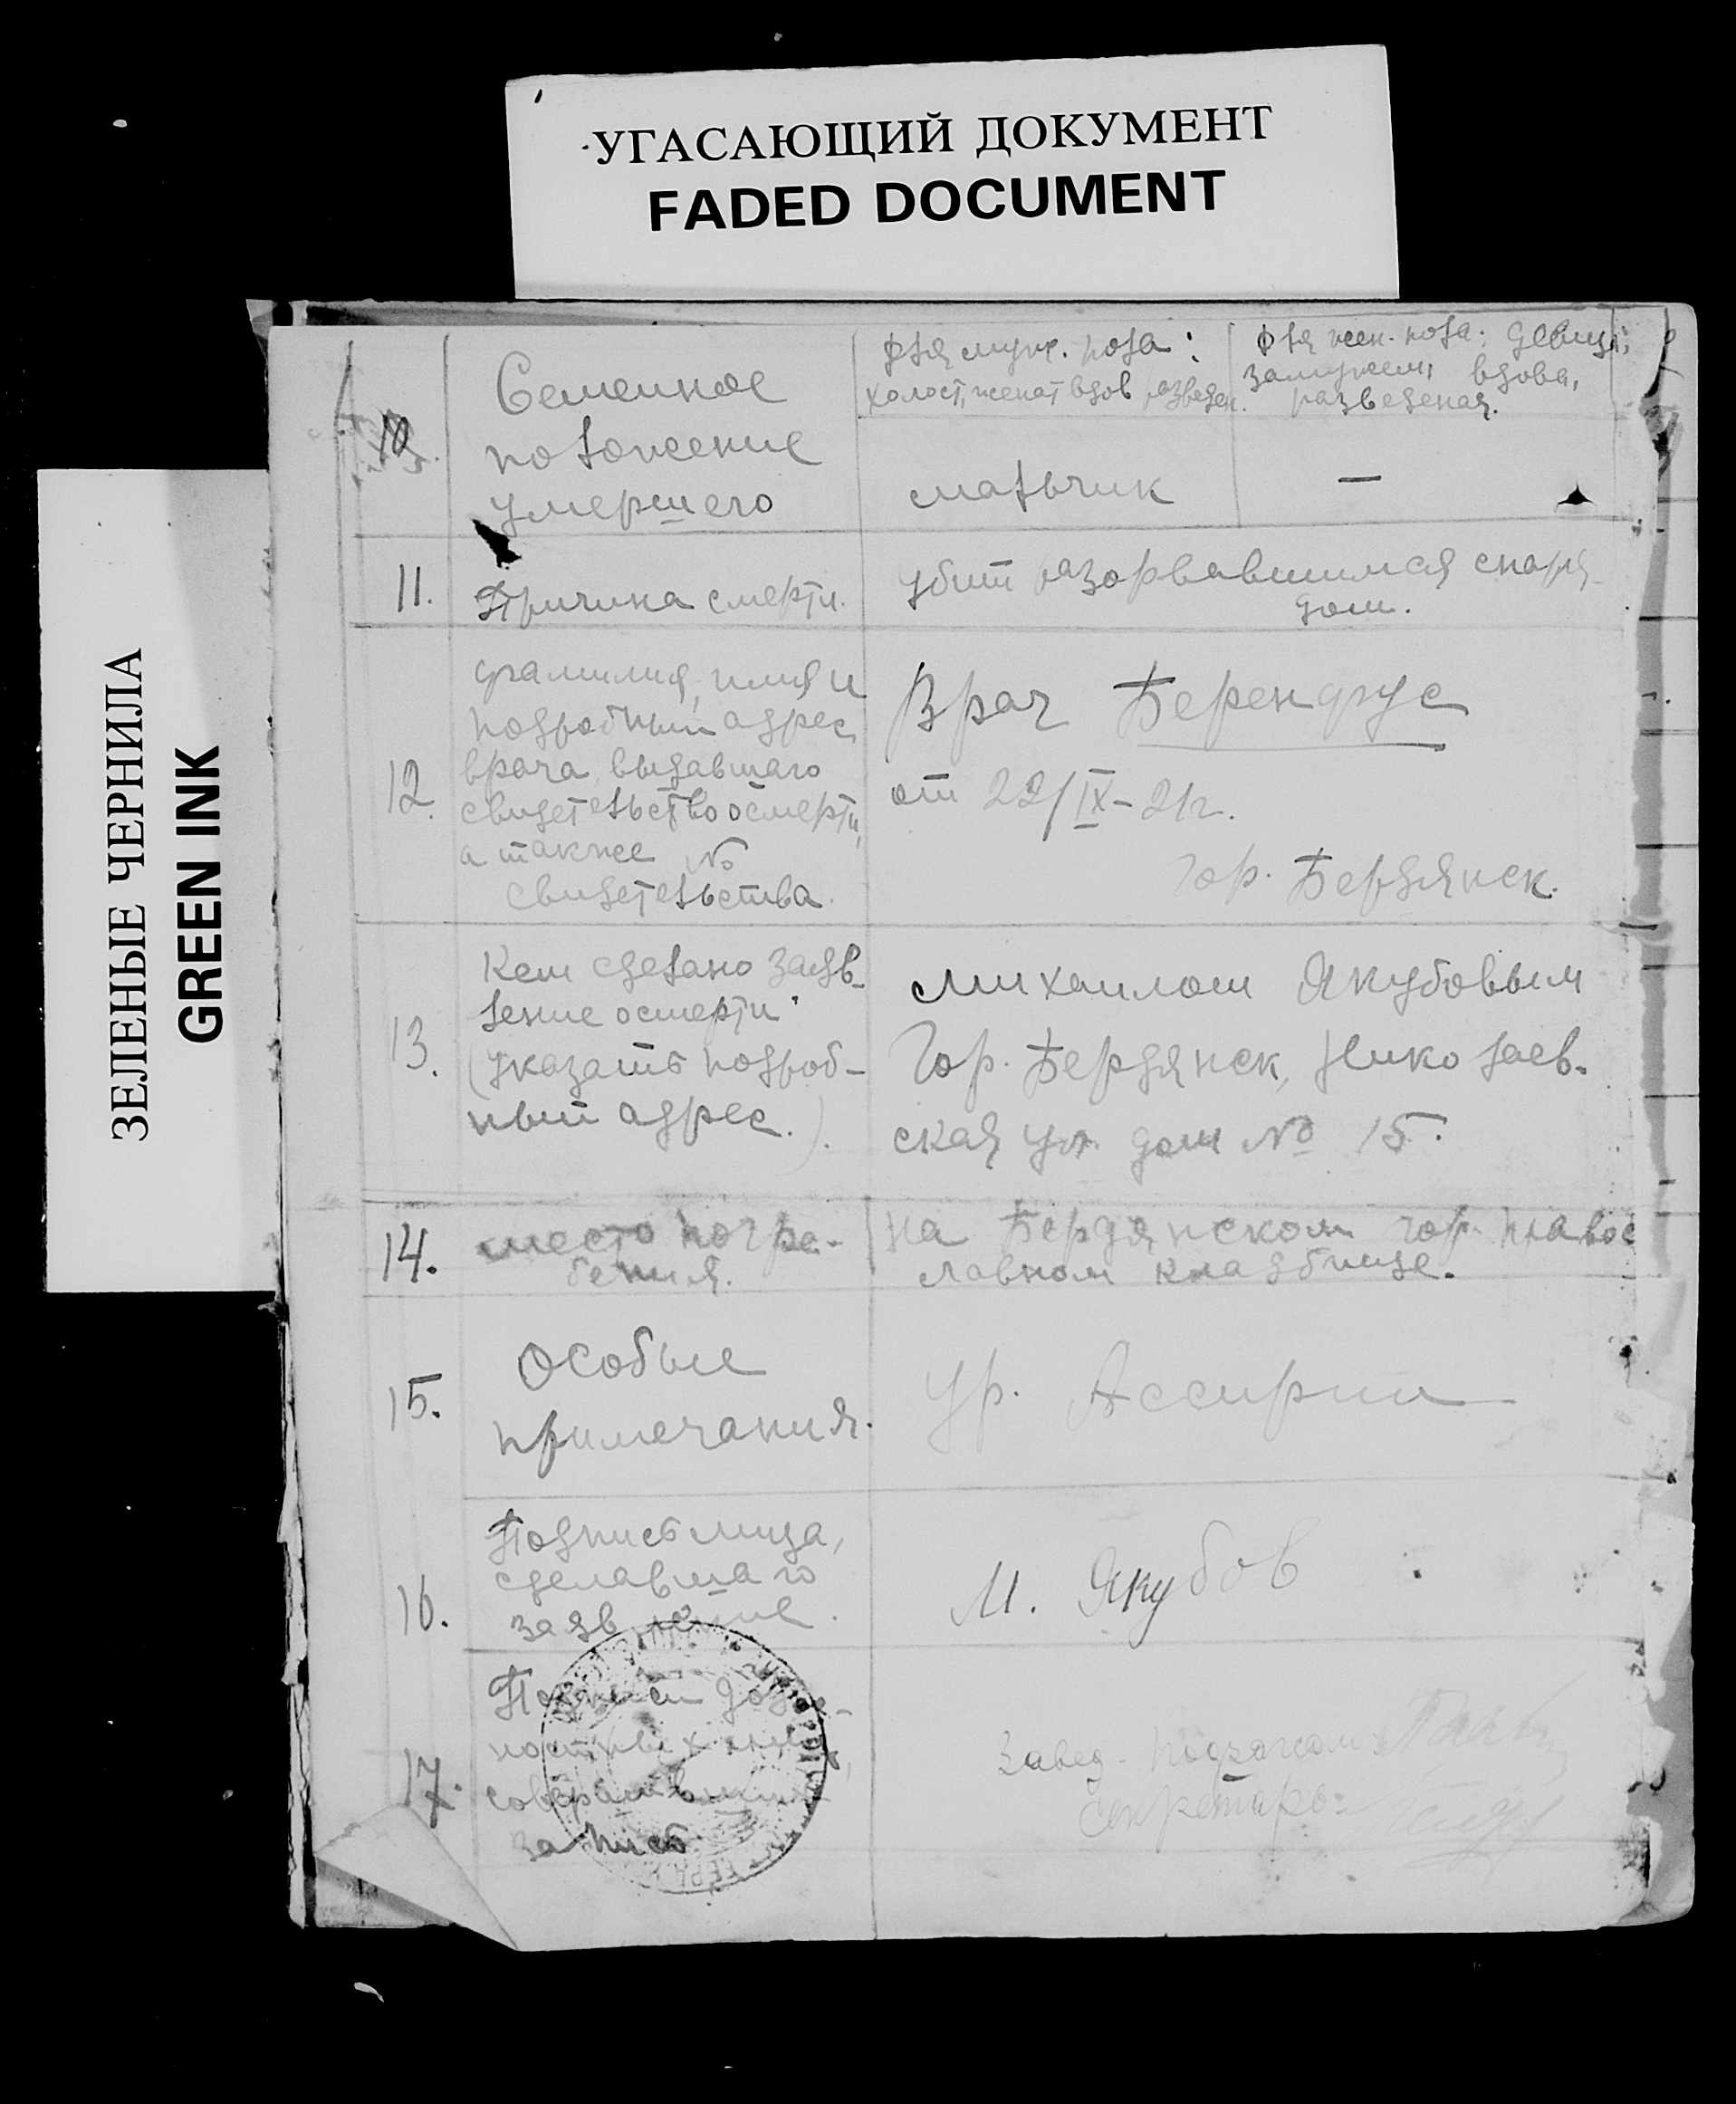 УГАСАЮЩИЙ ДОКУМЕНТ
FADED DOCUMENT
ЗЕЛЕНЫЕ ЧЕРНИЛА
GREEN INK
10.
Семейное
положение
умершего
Для муж. пола:
холост, женат вдов, разведен.
Для жен. пола: девица,
замужем, вдова,
разведеная.
мальчик
—
11.
Причина смерти.
убит разорвавшимся снаря-
дом.
12.
фамилия, имя и
подробный адрес
врача, выдавшаго
свидетельство о смерти,
а также №
свидетельства.
Врач Берендфус
от 22/IX-21г.
гор. Бердянск.
13.
Кем сделано заяв-
ление о смерти
(указать подроб-
ный адрес.).
Михаилом Якубовым
Гор. Бердянск, Николаев-
ская ул. дом № 15.
14.
место погре-
бения.
на Бердянском гор. правос
лавном кладбище.
15.
Особые
примечания.
Ур. Ассирии
16.
Подпись лица,
сделавшаго
заявление.
М. Якубов
17.
Подписи долж-
ностных лиц,
совершивших
запись
Завед. подзагсом
Секретарь: